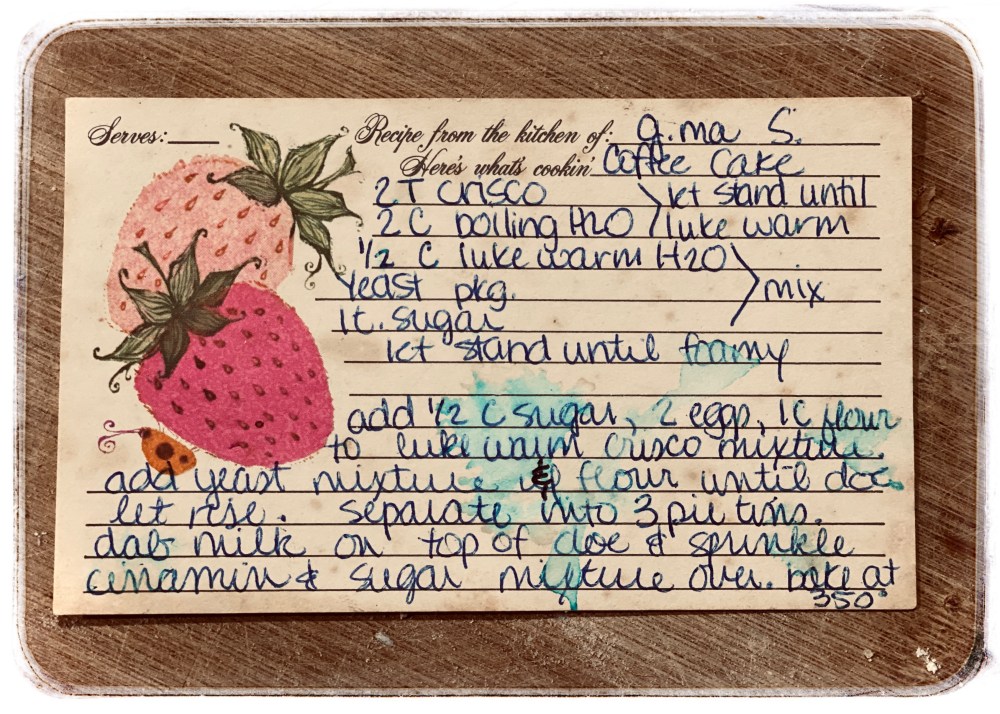 Serves:
Recipe from the kitchen of: G.ma S.
Here's what's cookin' Coffee Cake
2 T crisco > let stand until
2 C boiling H2O luke warm
1/2 C luke warm H2O
Yeast pkg. > mix
1t. sugar
let stand until foamy
add 1/2 C sugar, 2 eggs, 1C flour
to luke warm crisco mixture.
add yeast mixture & flour until doe
let rise. separate into 3 pie tins.
dab milk on top of doe & sprinkle
cinamin & sugar mixture over. bake at
350°